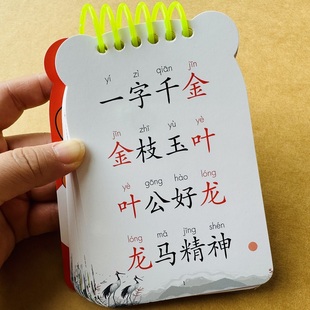 yī zì qiān jīn
一字千金
jīn zhī yù yè
金枝玉叶
yè gōng hào lóng
叶公好龙
lóng mǎ jīng shén
龙马精神